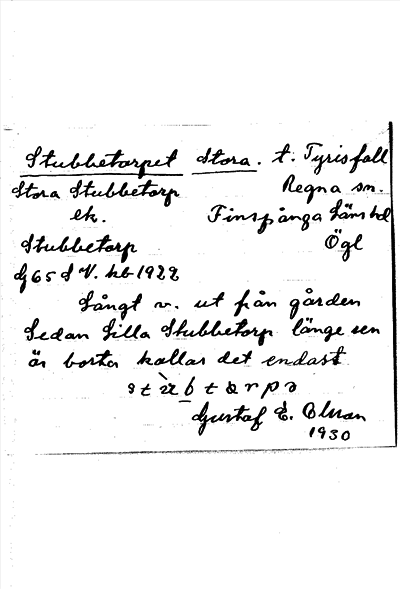 Stubbetorpet Stora. t. Tyrisfall
Stora Stubbetorp Regna sn.
ek. Finspånga läns hd
Stubbetorp Ögl
Gj 65 d V. hb 1922
Långt v. ut från gården
Sedan Lilla Stubbetorp länge sen
är borta kallas det endast
Gustaf E.
1930